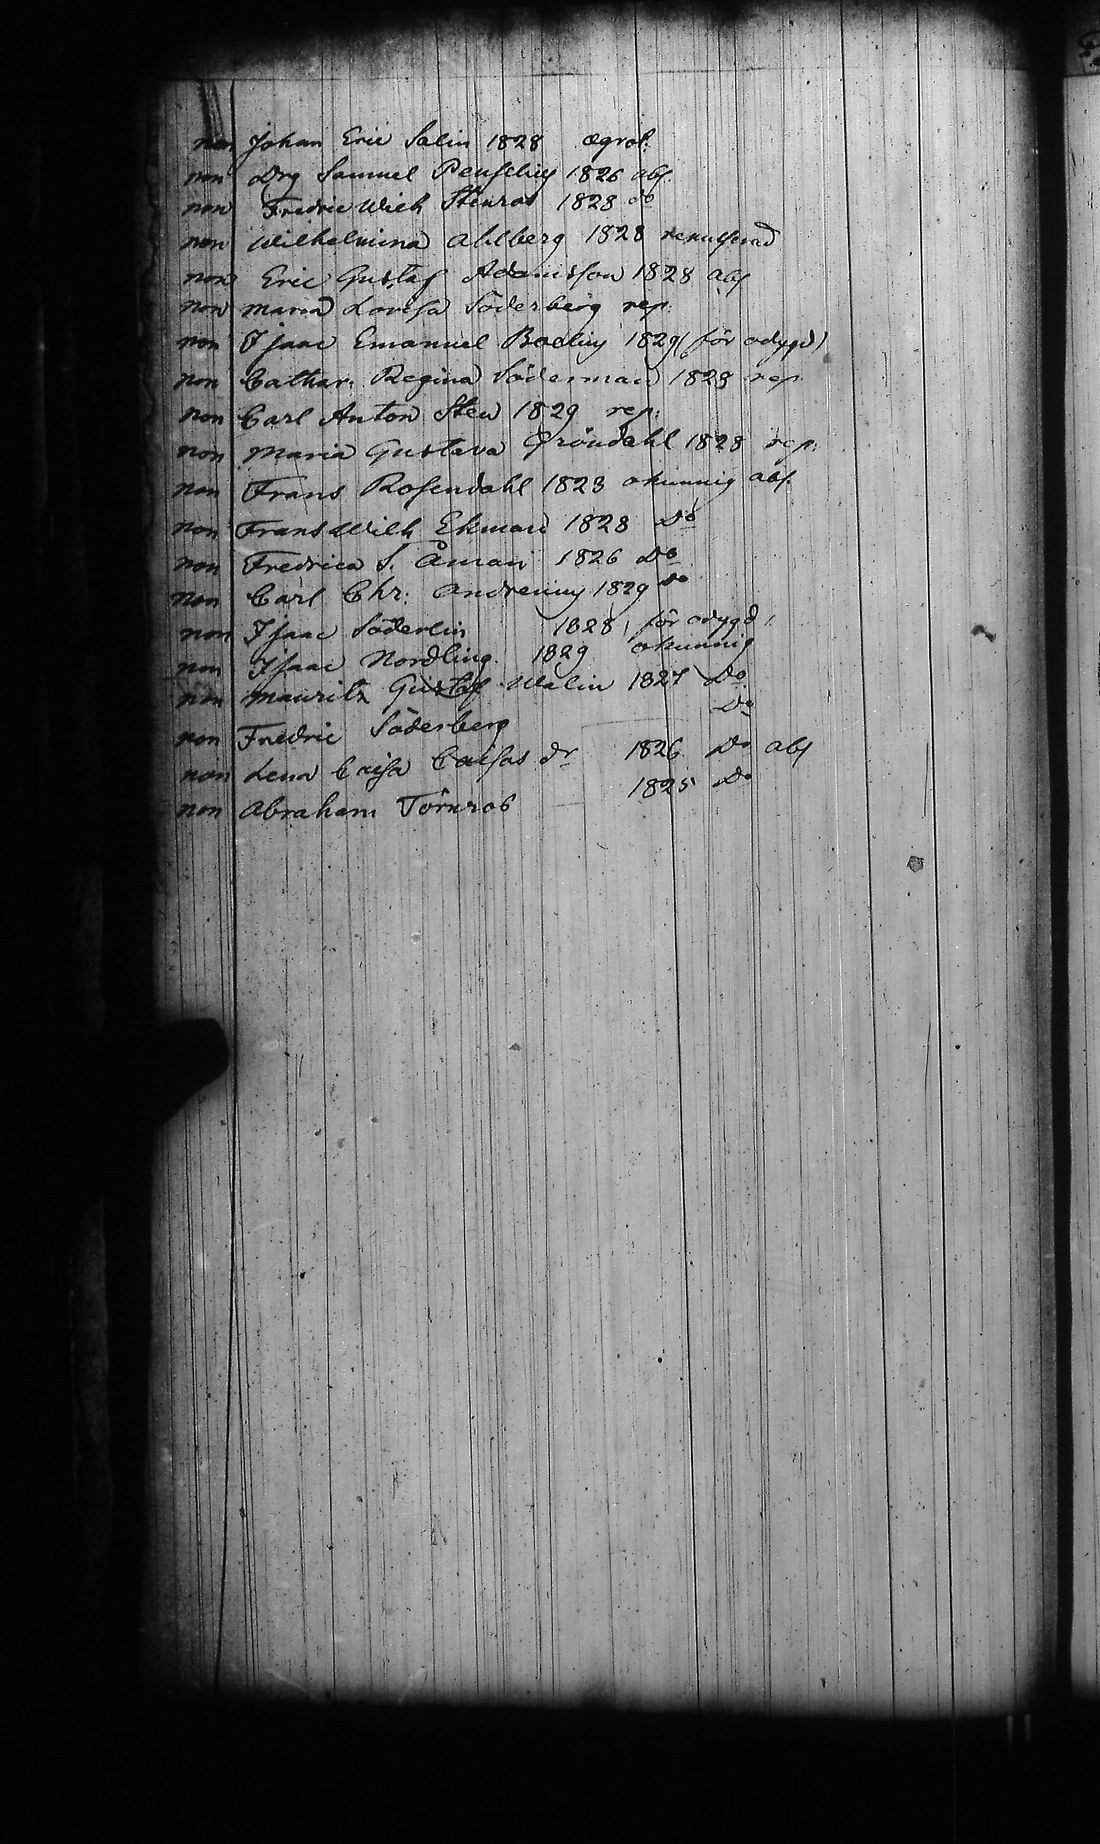 non Johan Eric Salin 1828 ægrot.
non Drg Samuel 1826 abs.
non Fredric Wilh Stenros 1828 do
non Wilhelmina Ahlberg 1828 repulserad
non Eric Gustaf Adamsson 1828 abs
non Maria Lovisa Söderberg rep.
non Isaac Emanuel Boelius 1829 (för odygd)
non Cathar. Regina Söderman 1828 rep.
non Carl Anton Sten 1829 rep:
non Maria Gustava Gröndahl 1828 rep:
non Frans Rosendahl 1828 okunnig abs.
non Frans Wilh Ekman 1828 Do
non Fredrica S. Åman 1826 Do
non Carl Chr: 1829 Do
non Isaac Söderlin 1828, för odygd,
non Isaac Nordling 1829 okunnig
non Mauritz Gustaf Walin 1827 Do
non Fredric Söderberg Do
non Lena Caisa Caisas dr 1826 Do abs
non Abraham Törnros 1825 Do